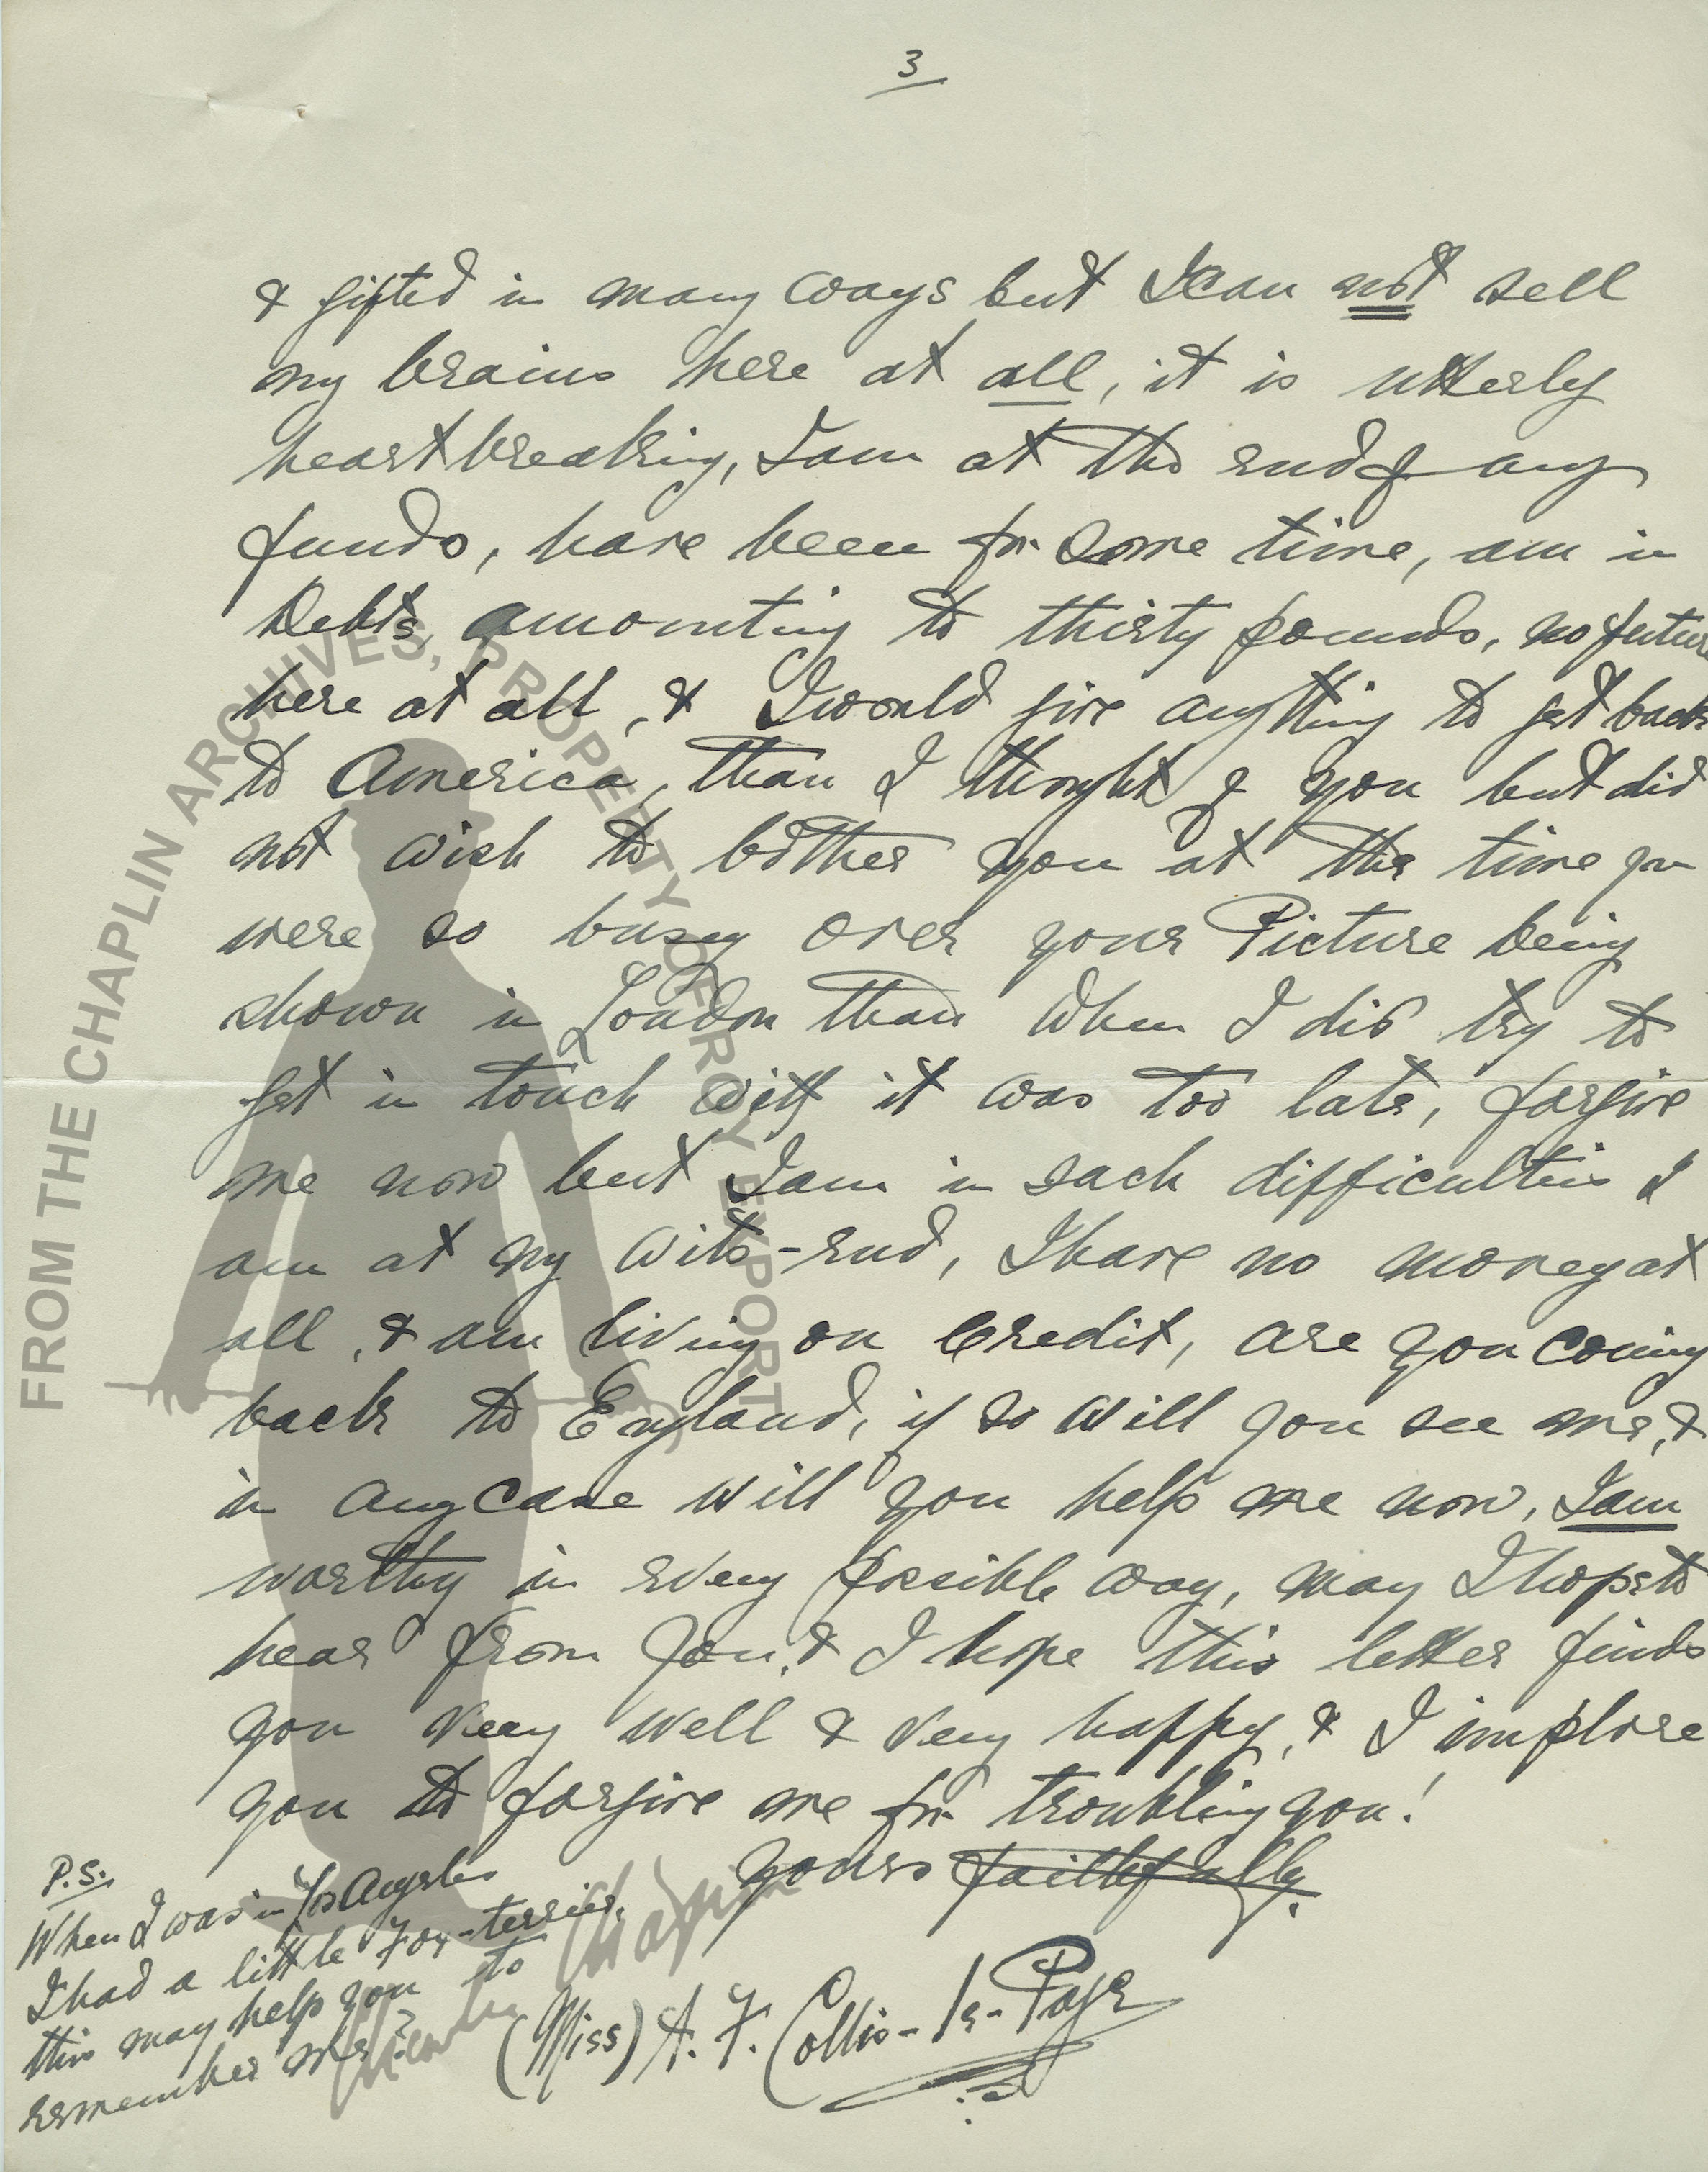 3
& gifted in many ways but I can not sell
my brains here at all, it is utterly
heartbreaking, I am at the end of any
funds, have been for some time, am in
Debts, amounting to thirty pounds, no future
here at all, & I would give anything to get back
to America, than I thought of you but did
not wish to bother you at the time you
were so busey over your Picture being
shown in London than when I did try to
get in touch with it was too late, forgive
me now but I am in sach difficulties I
am at my wits-end, I have no money at
all, & am living on Credit, are you coming
back to England, if so will you see me, &
in any case will you help me now, I am
worthy in every possible way, may I hope to
hear from you, & I hope this letter finds
you very well & very happy, & I implore
you to forgive me for troubling you!
yours faithfully.
(Miss) A. F. Collis-le-Page
P.S.
When I was in Los Angeles
I had a little Fox-terrier,
this may help you to
remember me?
FROM THE CHAPLIN ARCHIVES, PROPERTY OF ROY EXPORT
Charlie Chaplin